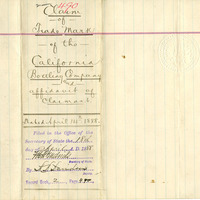 490
Claim
of
Trade Mark
of the
California
Bottling Company
and
affidavit of
Claimant
Dated April 14th 1888.
Filed in the Office of the
Secretary of State the 18th
day of April A. D. 1888
Secretary of State
By
Record Book, Page